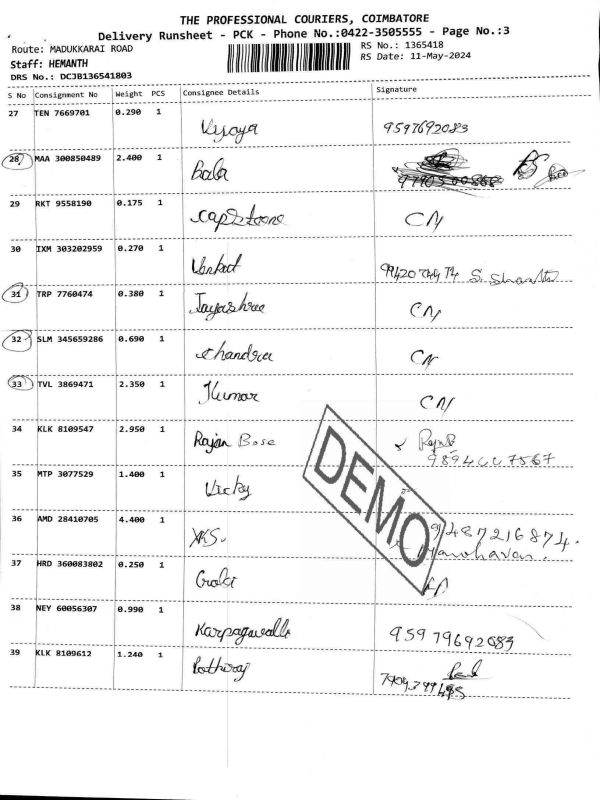 THE PROFESSIONAL COURIERS, COIMBATORE
Delivery Runsheet - PCK - Phone No.:0422-3505555 - Page No.:3
Route: MADUKKARAI ROAD
RS No.: 1365418
Staff: HEMANTH
RS Date: 11-May-2024
DRS No.: DCJB136541803
S No Consignment No Weight PCS Consignee Details Signature
27 TEN 7669701 0.290 1 Vijaya 9597692083
28 MAA 300850489 2.400 1 Bala
29 RKT 9558190 0.175 1 Capstone CN
30 IXM 303202959 0.270 1 Venkat S. Shanthi
31 TRP 7760474 0.380 1 Jayashree CN
32 SLM 345659286 0.690 1 Chandra CN
33 TVL 3869471 2.350 1 Kumar CN
34 KLK 8109547 2.950 1 Rajan Bose
35 MTP 3077529 1.400 1 Vicky
36 AMD 28410705 4.400 1 9487216874.
Manoharan.
37 HRD 360083802 0.250 1
38 NEY 60056307 0.990 1 Karpagavalli 95979692083
39 KLK 8109612 1.240 1
DEMO